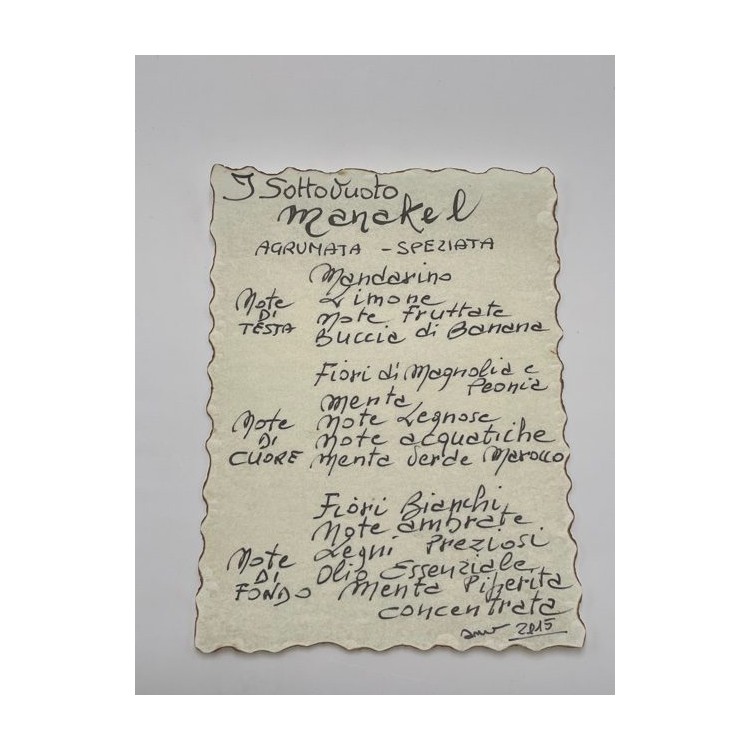 I Sottovuoto
Manakel
AGRUMATA - SPEZIATA
Mandarino
Limone
Note Fruttate
Buccia di Banana
Note
DI
TESTA
Fiori di Magnolia e
Peonia
Menta
Note Legnose
Note acquatiche
Menta Verde Marocco
Note
DI
CUORE
Fiori Bianchi
Note ambrate
Legni Preziosi
Olio Essenziale
Menta Piperita
concentrata
Note
DI
FONDO
2015